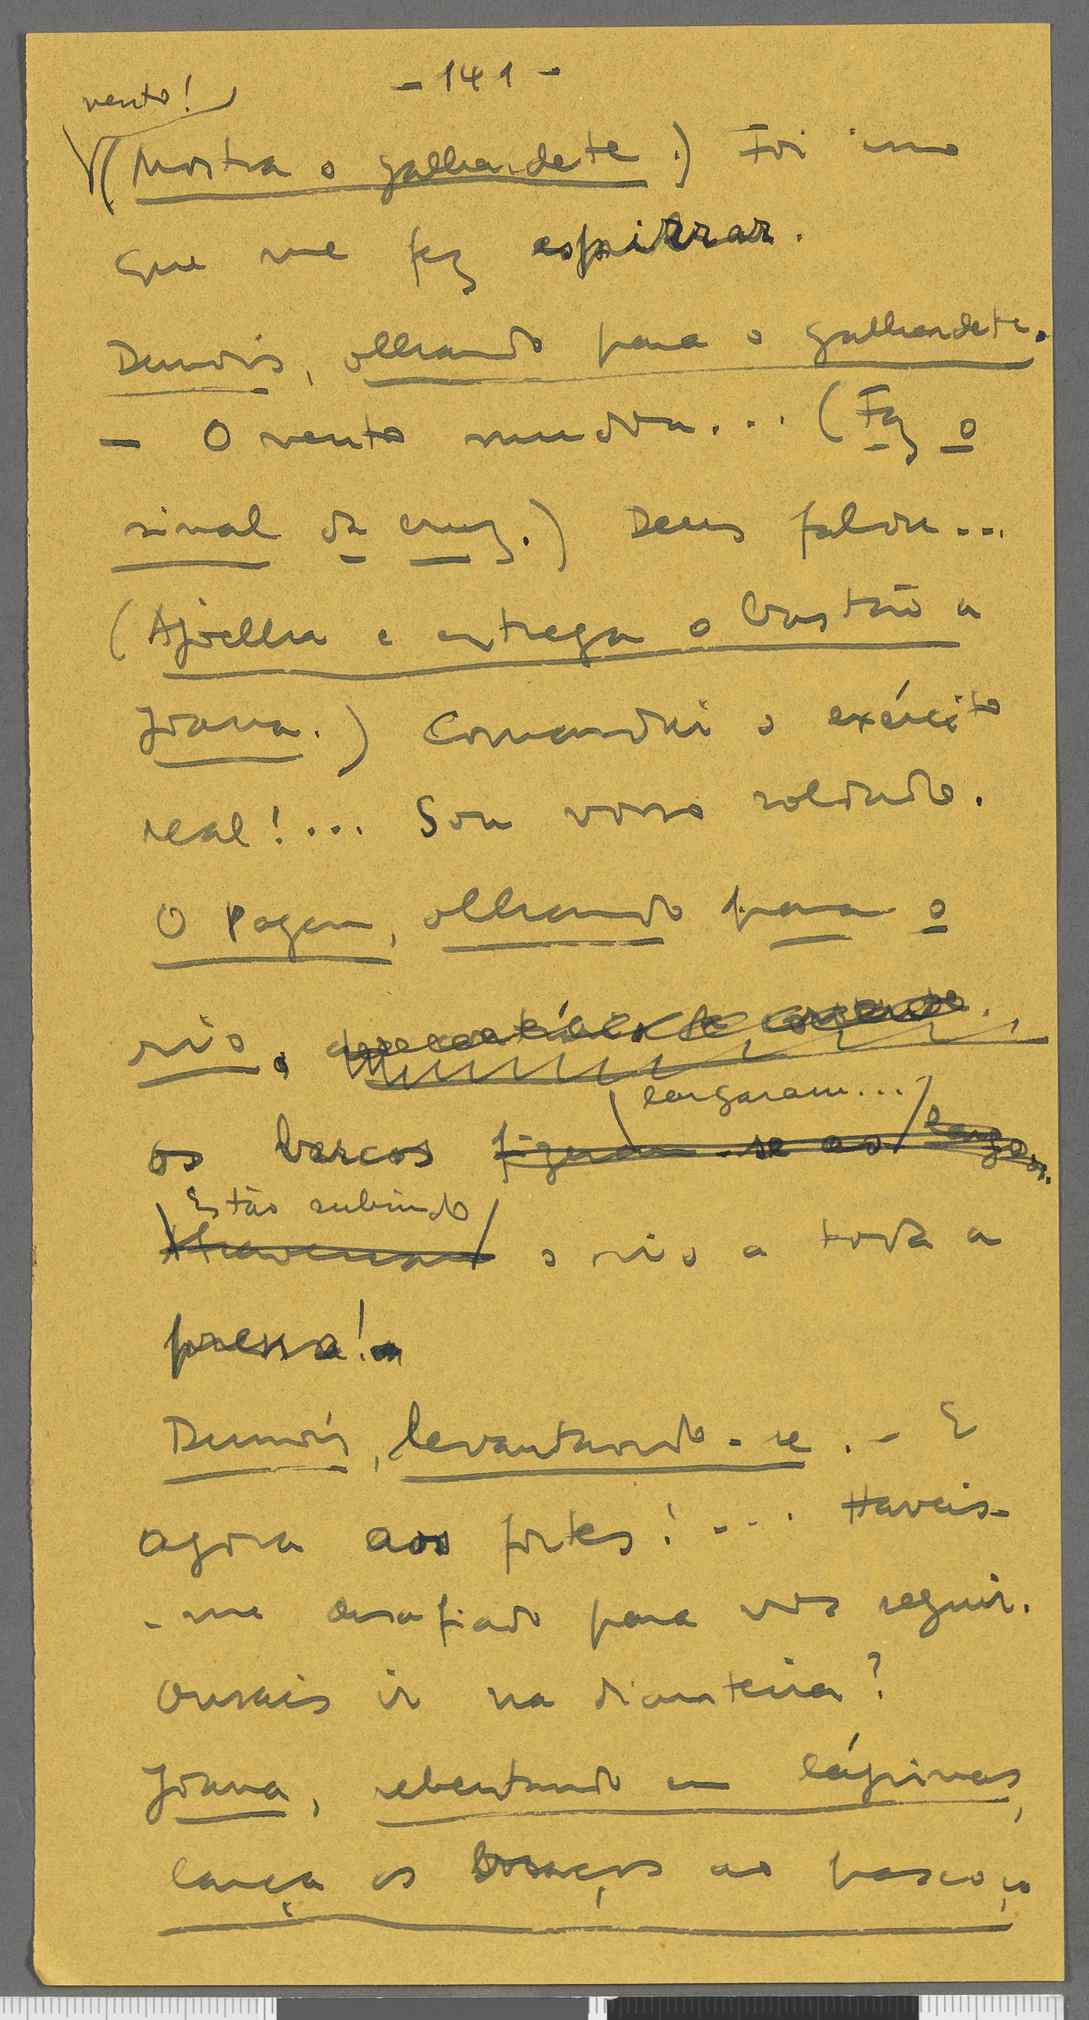 - 141 -
vento!
(Mostra o galhardete.) Foi isso
que me fez espirrar.
Dunois, olhando para o galhardete.
- O vento mudou... (Faz o
sinal da cruz.) Deus falou...
(Ajoelha e entrega o bastão a
Joana.) Comandai o exército
real!... Sou vosso soldado.
O Pagem, olhando para o
rio.
largaram...
os barcos
Estão subindo
Atravessam o rio a toda a
pressa!
Dunois, levantando-se. - E
agora aos fortes!... Haveis-
-me desafiado para vos seguir.
Ousais ir na dianteira?
Joana, rebentando em lágrimas,
lança os braços ao pescoço